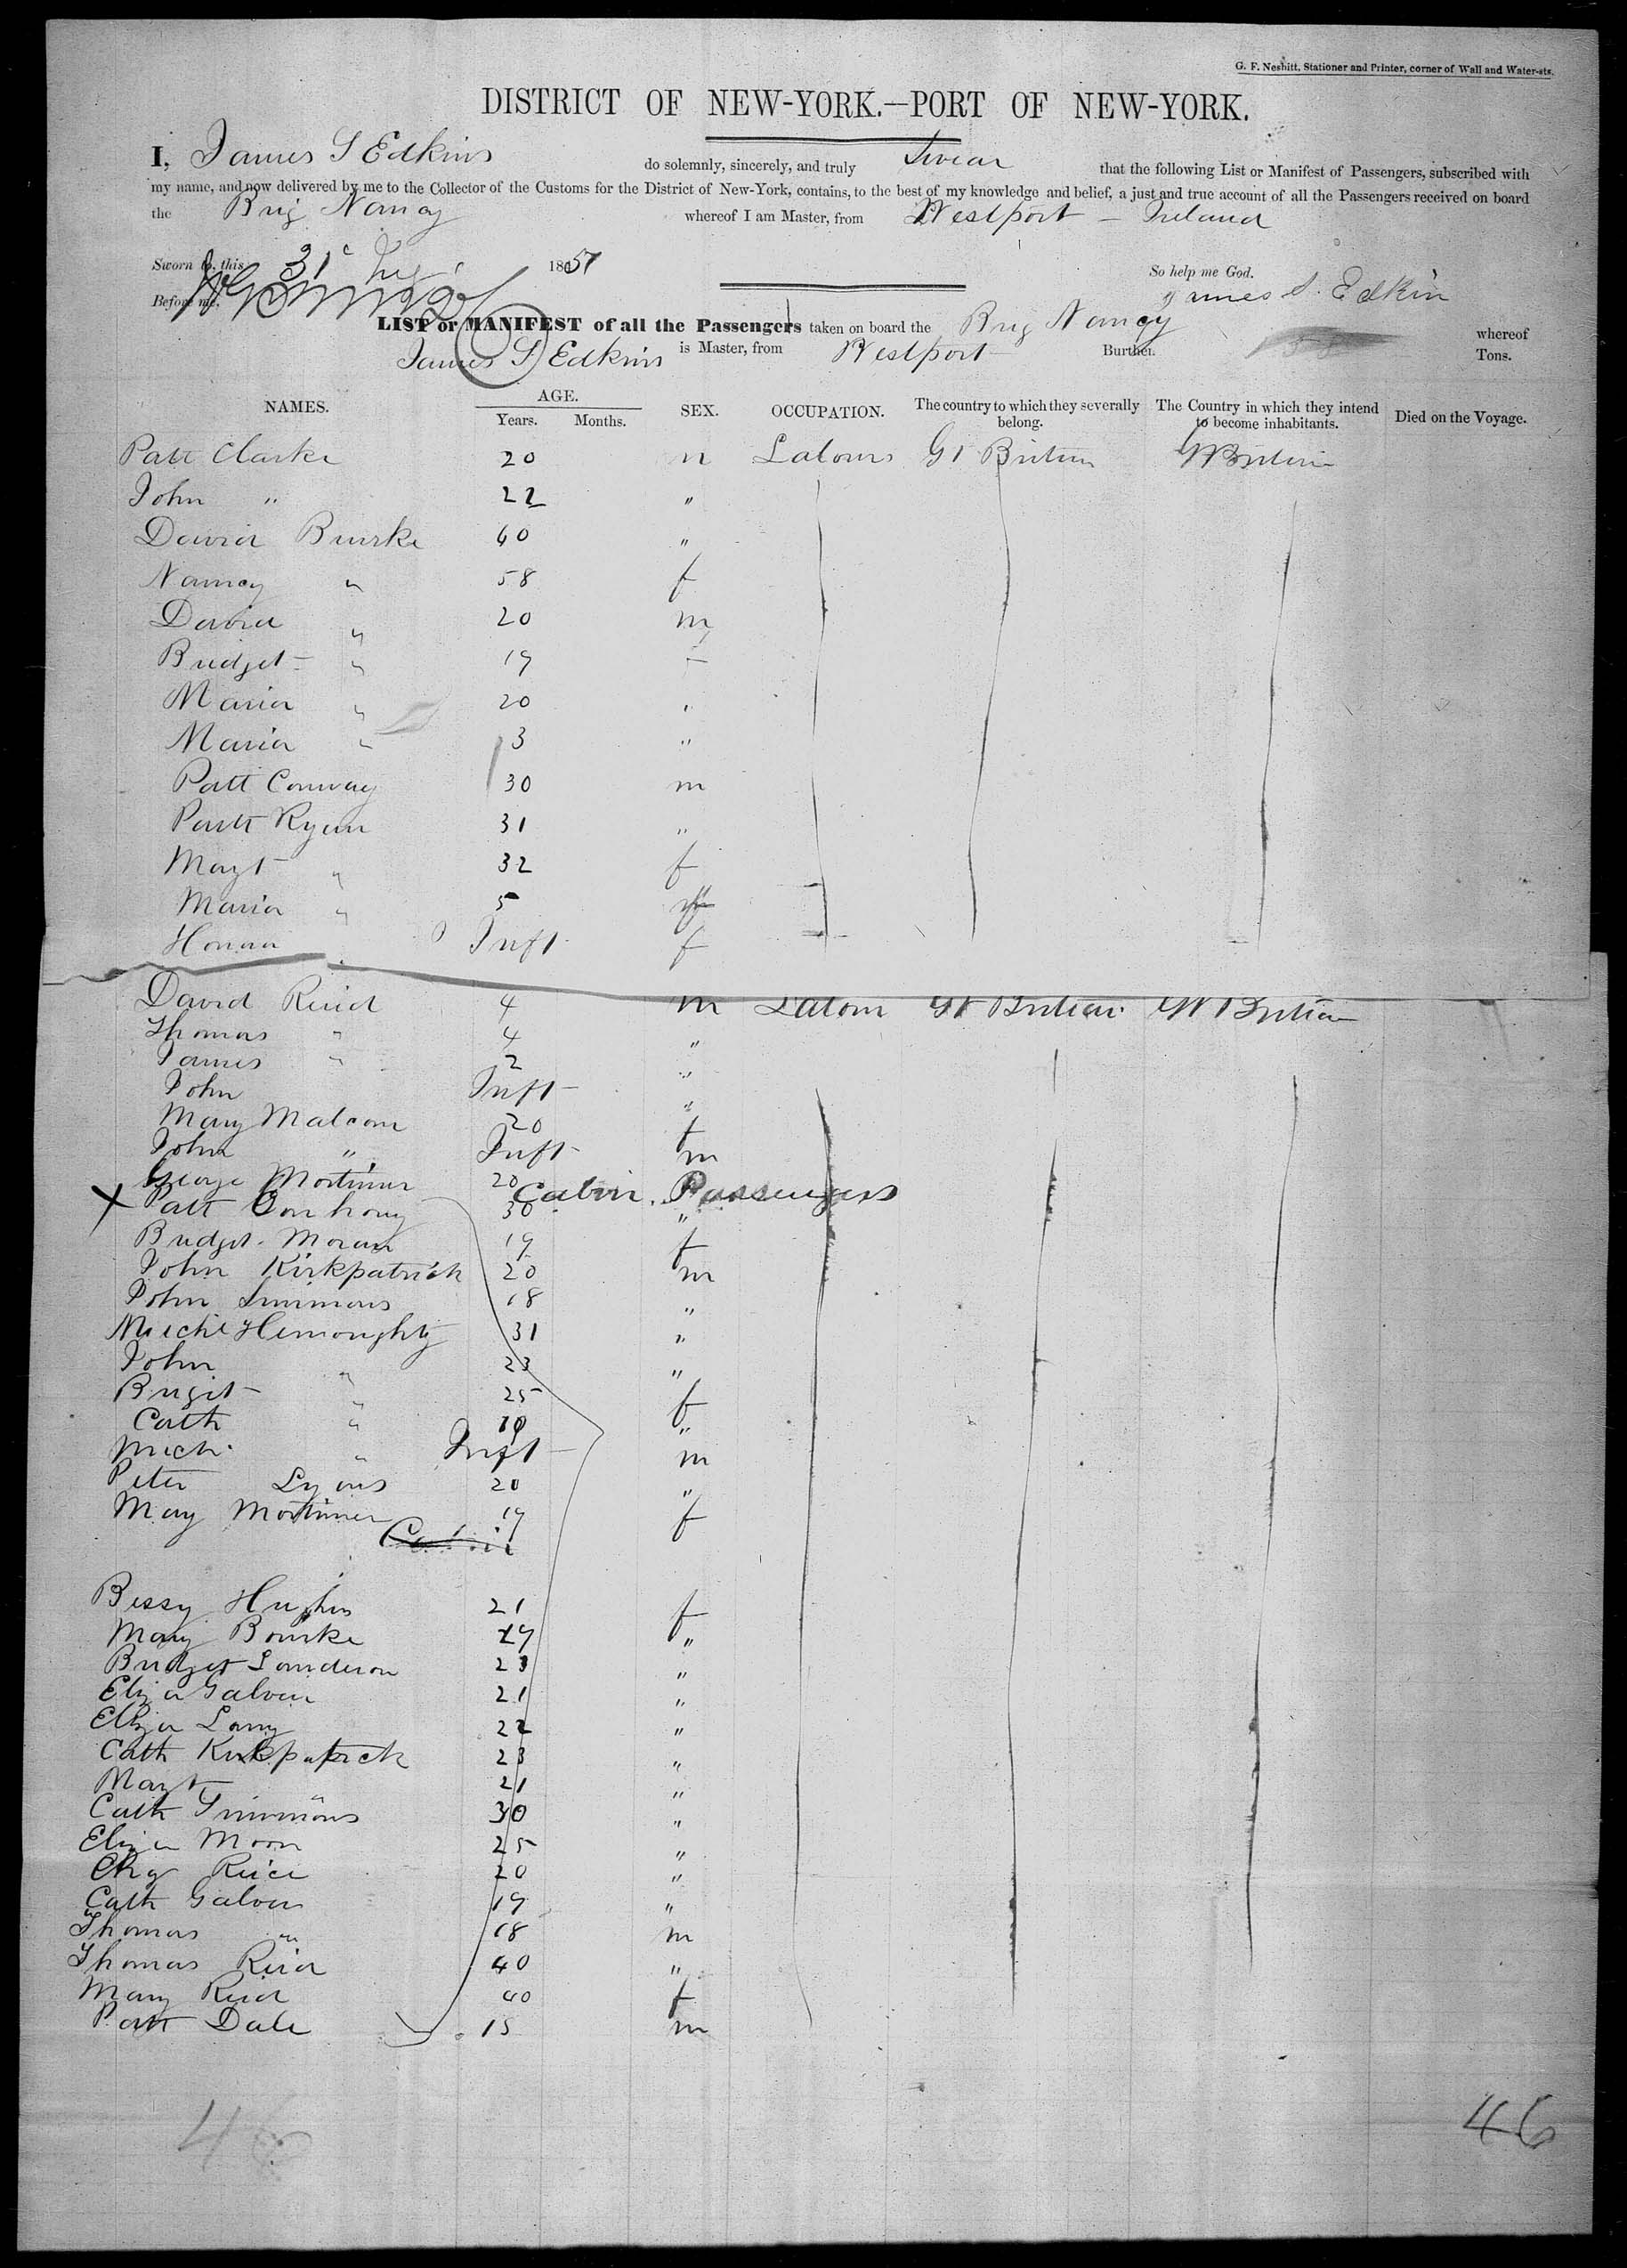 G. F. Nesbitt, Stationer and Printer, corner of Wall and Water-sts.
DISTRICT OF NEW-YORK.—PORT OF NEW-YORK.
I, James S Edkins do solemnly, sincerely, and truly Swear that the following List or Manifest of Passengers, subscribed with
my name, and now delivered by me to the Collector of the Customs for the District of New-York, contains, to the best of my knowledge and belief, a just and true account of all the Passengers received on board
the Brig Nancy whereof I am Master, from Westport - Ireland
Sworn to, this 31 1851 So help me God.
Before me, James S. Edkin
LIST or MANIFEST of all the Passengers taken on board the Brig Nancy whereof
James S Edkins is Master, from Westport Burthen Tons.
NAMES. AGE. Years. Months. SEX. OCCUPATION. The country to which they severally belong. The Country in which they intend to become inhabitants. Died on the Voyage.
Patt Clarke 20 m Labours Gt Britain Gt Britain
John " 22 "
David Burke 60 "
Nancy " 58 f
David " 20 m
Bridget " 19
Maria " 20
Maria " 3 "
Patt Conway 30 m
Patt Ryan 31 "
Magt " 32 f
Maria " 5
Honna Inft f
David Reid 4 m Labour Gt Britain Gt Britain
Thomas " 4 "
James " 2 "
John Inft "
Mary Malcom 20 f
John " Inft m
George Mortimer 20 Cabin Passengers
X Patt 30 "
Bridget Moran 19 f
John Kirkpatrick 20 m
John Simmons 18 "
Miche Hemoughty 31 "
John " 23 "
Brigit " 25 f
Cath " "
Mich. " Inft m
Peter Lyons 20 "
Mary Mortimer 19 f
Cabin
Bessy Hughes 21 f
Mary Bourke 19 "
Bridget 23 "
Eliza Galvin 21 "
Eliza 22 "
Cath Kirkpatrick 23 "
Magt " 21 "
Cath Simmons 30 "
Eliza Moon 25 "
20 "
Cath Galvin 19 "
Thomas " 18 m
Thomas Reid 40 "
Mary Reid 40 f
Patt Dale 15 m
46 46